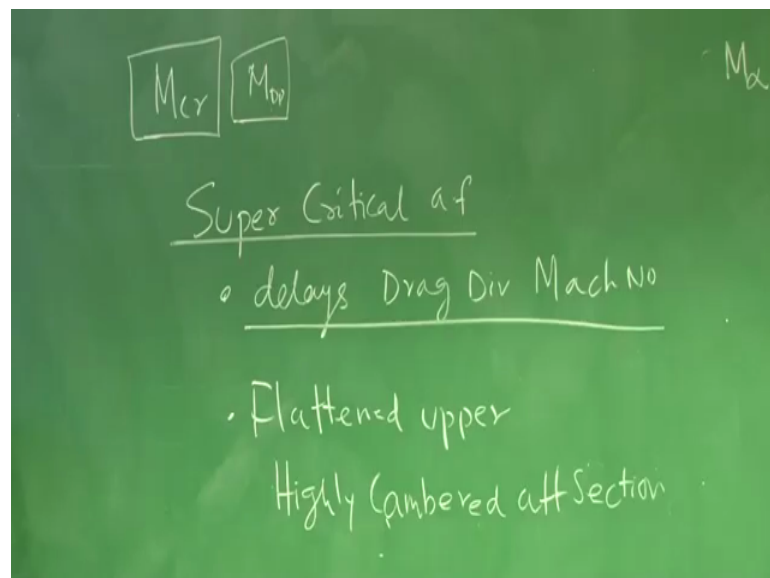 Mcr MDD
Mα
Super Critical af
• delays Drag Div Mach No
• Flattened upper
Highly Cambered aft Section